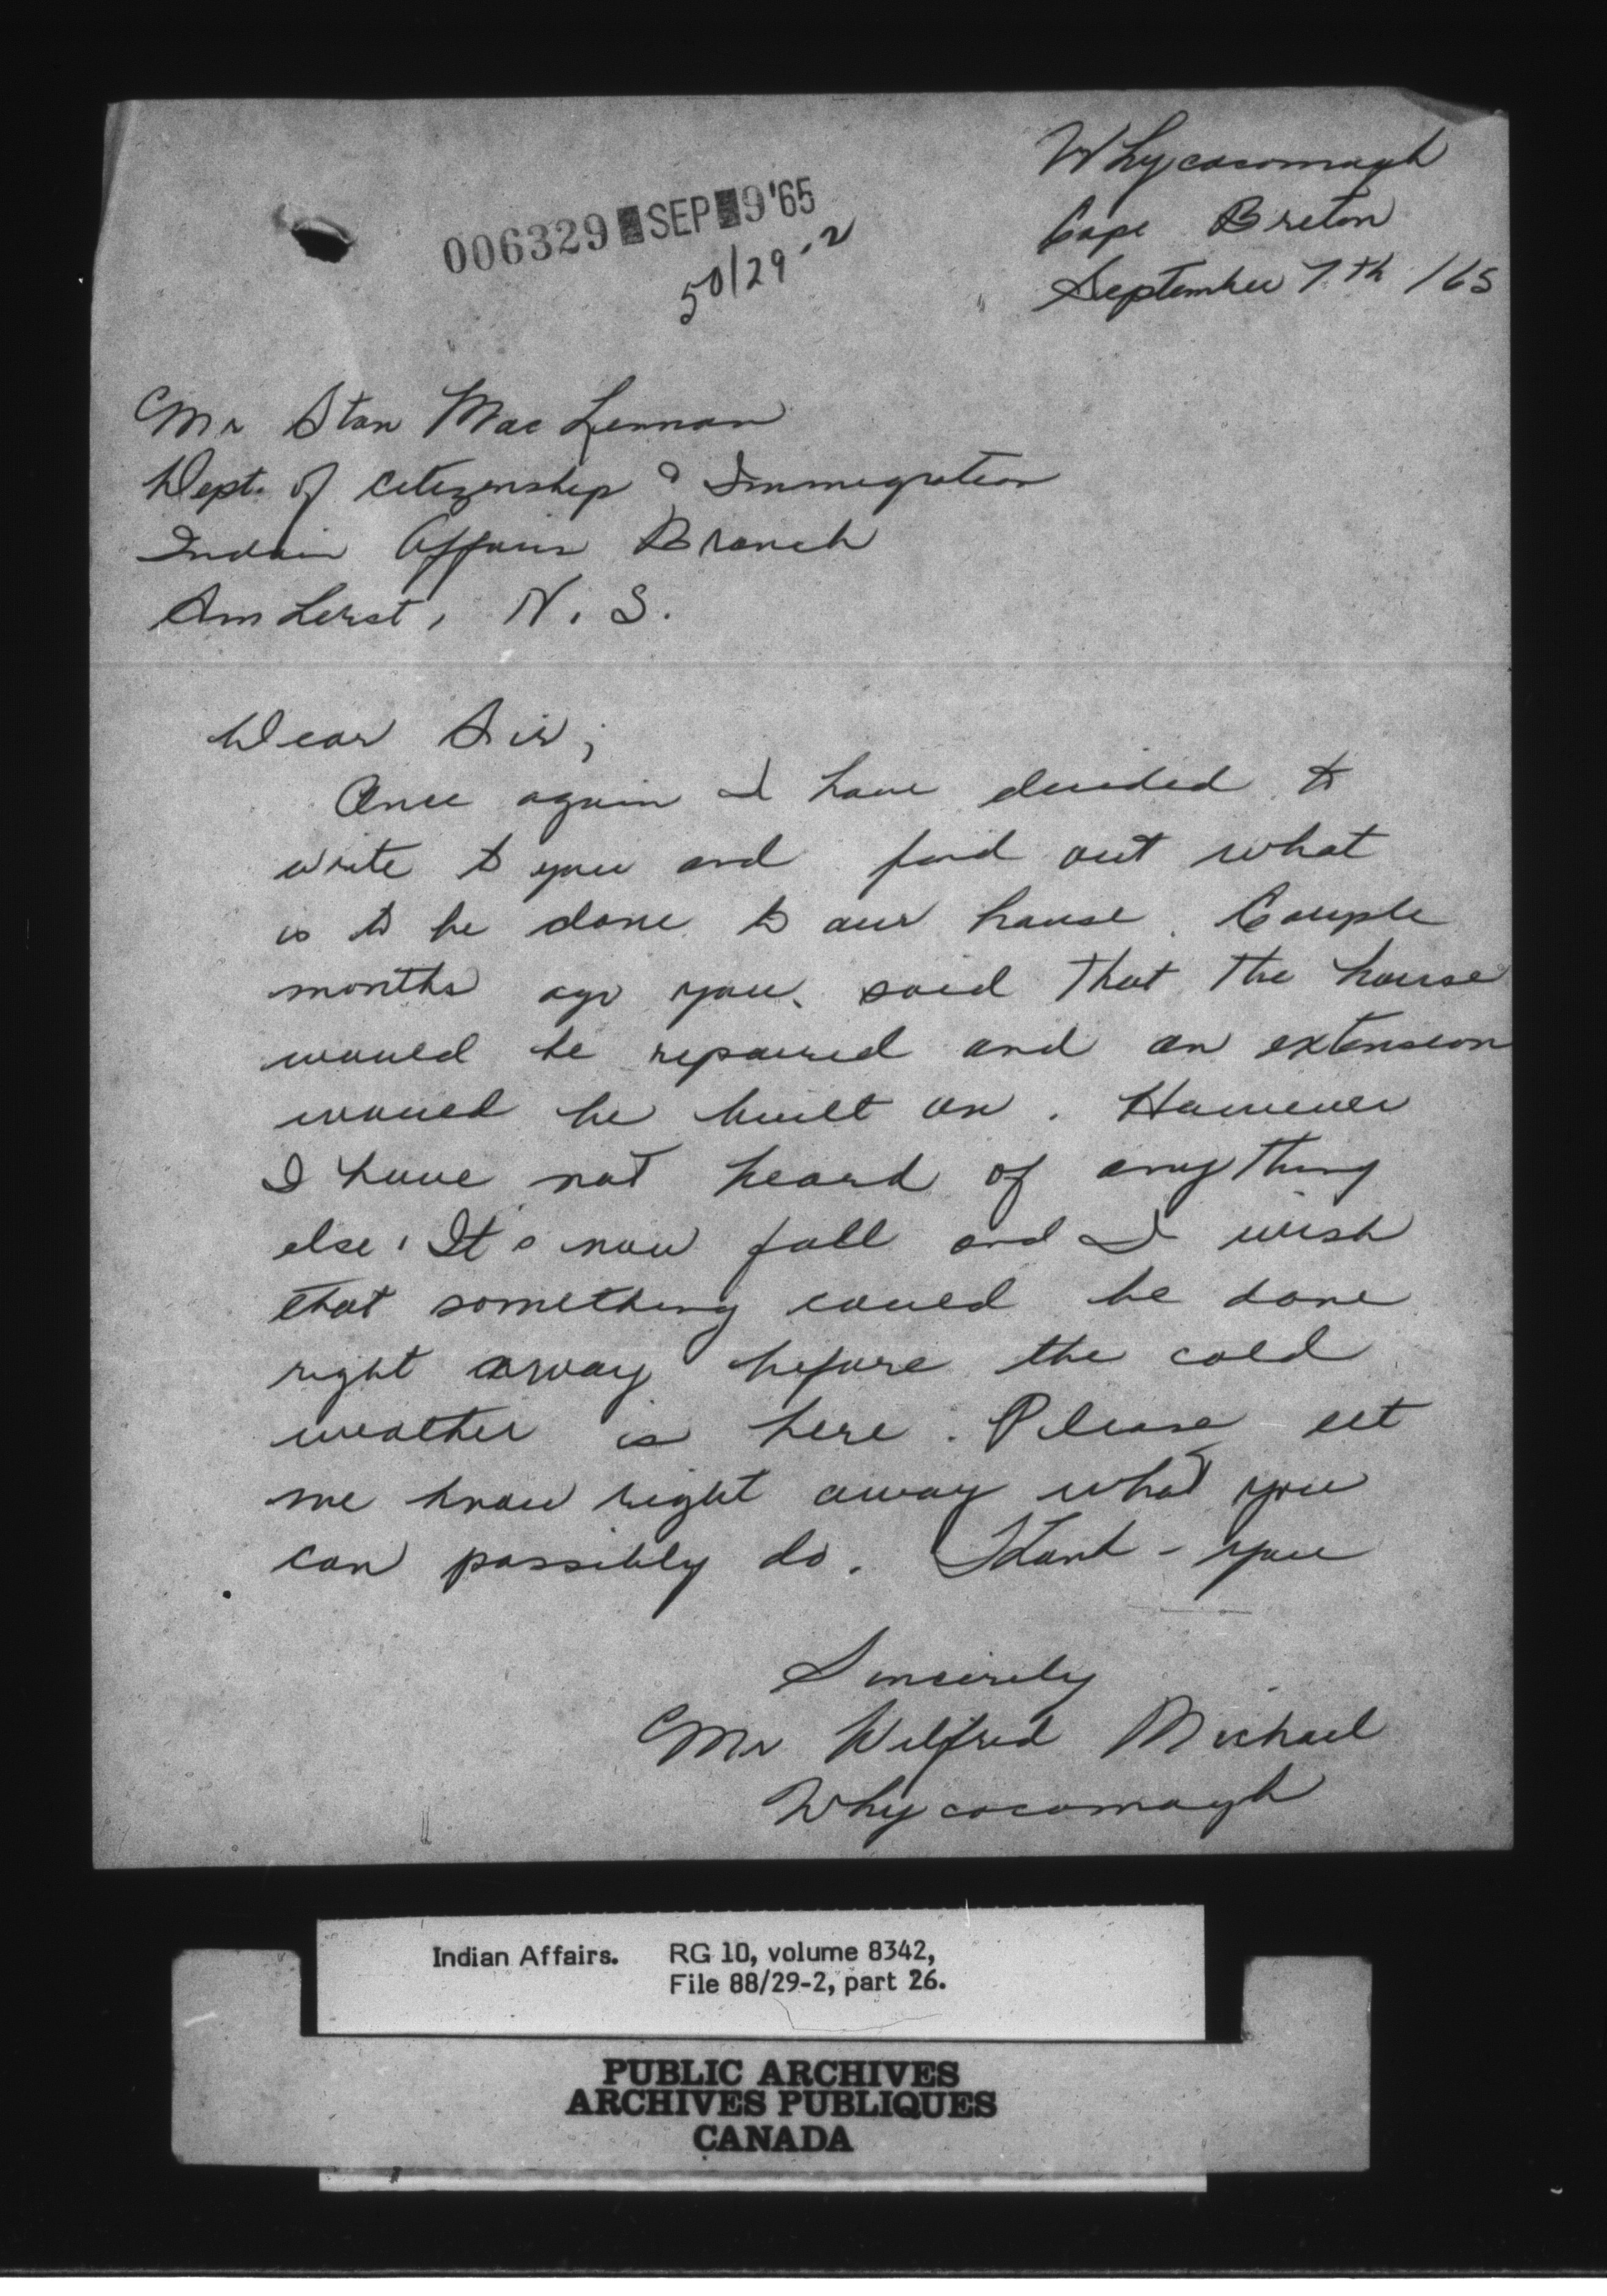 Whycocomagh
Cape Breton
September 7th /65
006329 SEP 9 '65
50/29-2
Mr Stan MacLennan
Dept. of Citizenship & Immigration
Indain Affairs Branch
Amherst, N.S.
Dear Sir;
Once again I have decided to
write to you and find out what
is to be done to our house. Couple
months ago you said that the house
would be repaired and an extension
would be built on. However
I have not heard of anything
else. It's now fall and I wish
that something could be done
right away before the cold
weather is here. Please let
me know right away what you
can possibly do. Thank-you
Sincerely
Mr Wilfred Michael
Whycocomagh
Indian Affairs. RG 10, volume 8342,
File 88/29-2, part 26.
PUBLIC ARCHIVES
ARCHIVES PUBLIQUES
CANADA